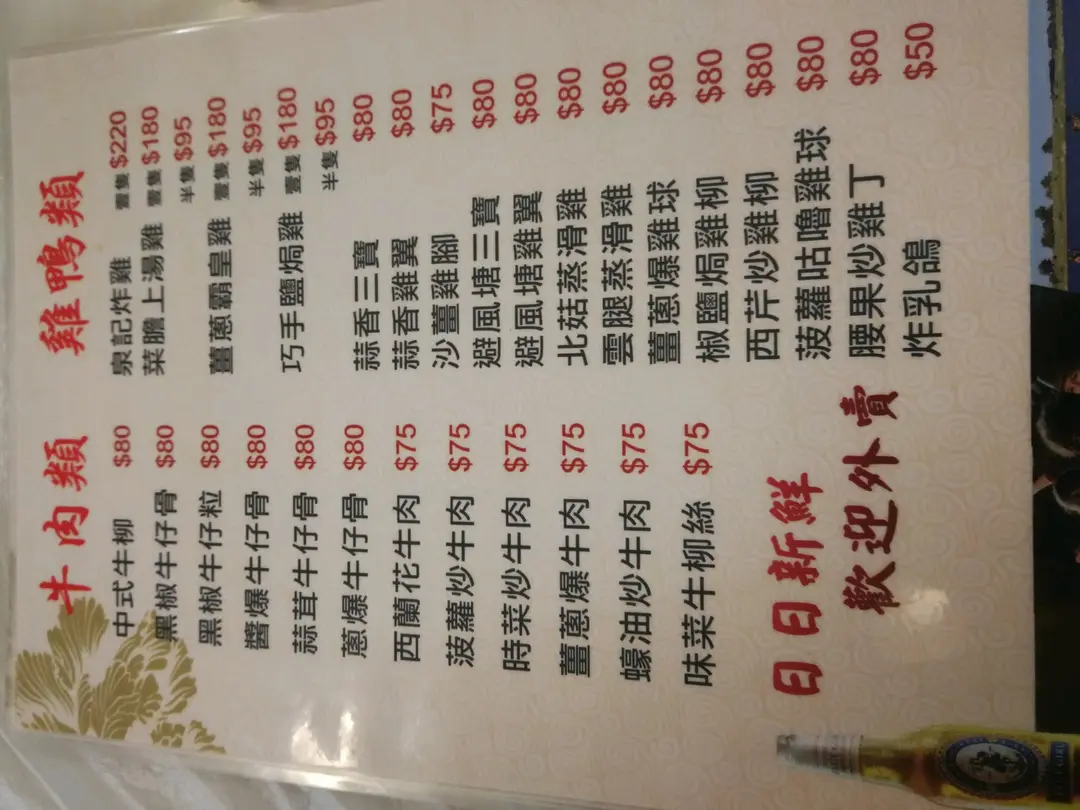 牛肉類
中式牛柳 $80
黑椒牛仔骨 $80
黑椒牛仔粒 $80
醬爆牛仔骨 $80
蒜茸牛仔骨 $80
蔥爆牛仔骨 $80
西蘭花牛肉 $75
菠蘿炒牛肉 $75
時菜炒牛肉 $75
薑蔥爆牛肉 $75
蠔油炒牛肉 $75
味菜牛柳絲 $75
雞鴨類
泉記炸雞 壹隻 $220
菜膽上湯雞 壹隻 $180
半隻 $95
薑蔥霸皇雞 壹隻 $180
半隻 $95
巧手鹽焗雞 壹隻 $180
半隻 $95
蒜香三寶 $80
蒜香雞翼 $80
沙薑雞腳 $75
避風塘三寶 $80
避風塘雞翼 $80
北菇蒸滑雞 $80
雲腿蒸滑雞 $80
薑蔥爆雞球 $80
椒鹽焗雞柳 $80
西芹炒雞柳 $80
菠蘿咕嚕雞球 $80
腰果炒雞丁 $80
炸乳鴿 $50
日日新鮮
歡迎外賣